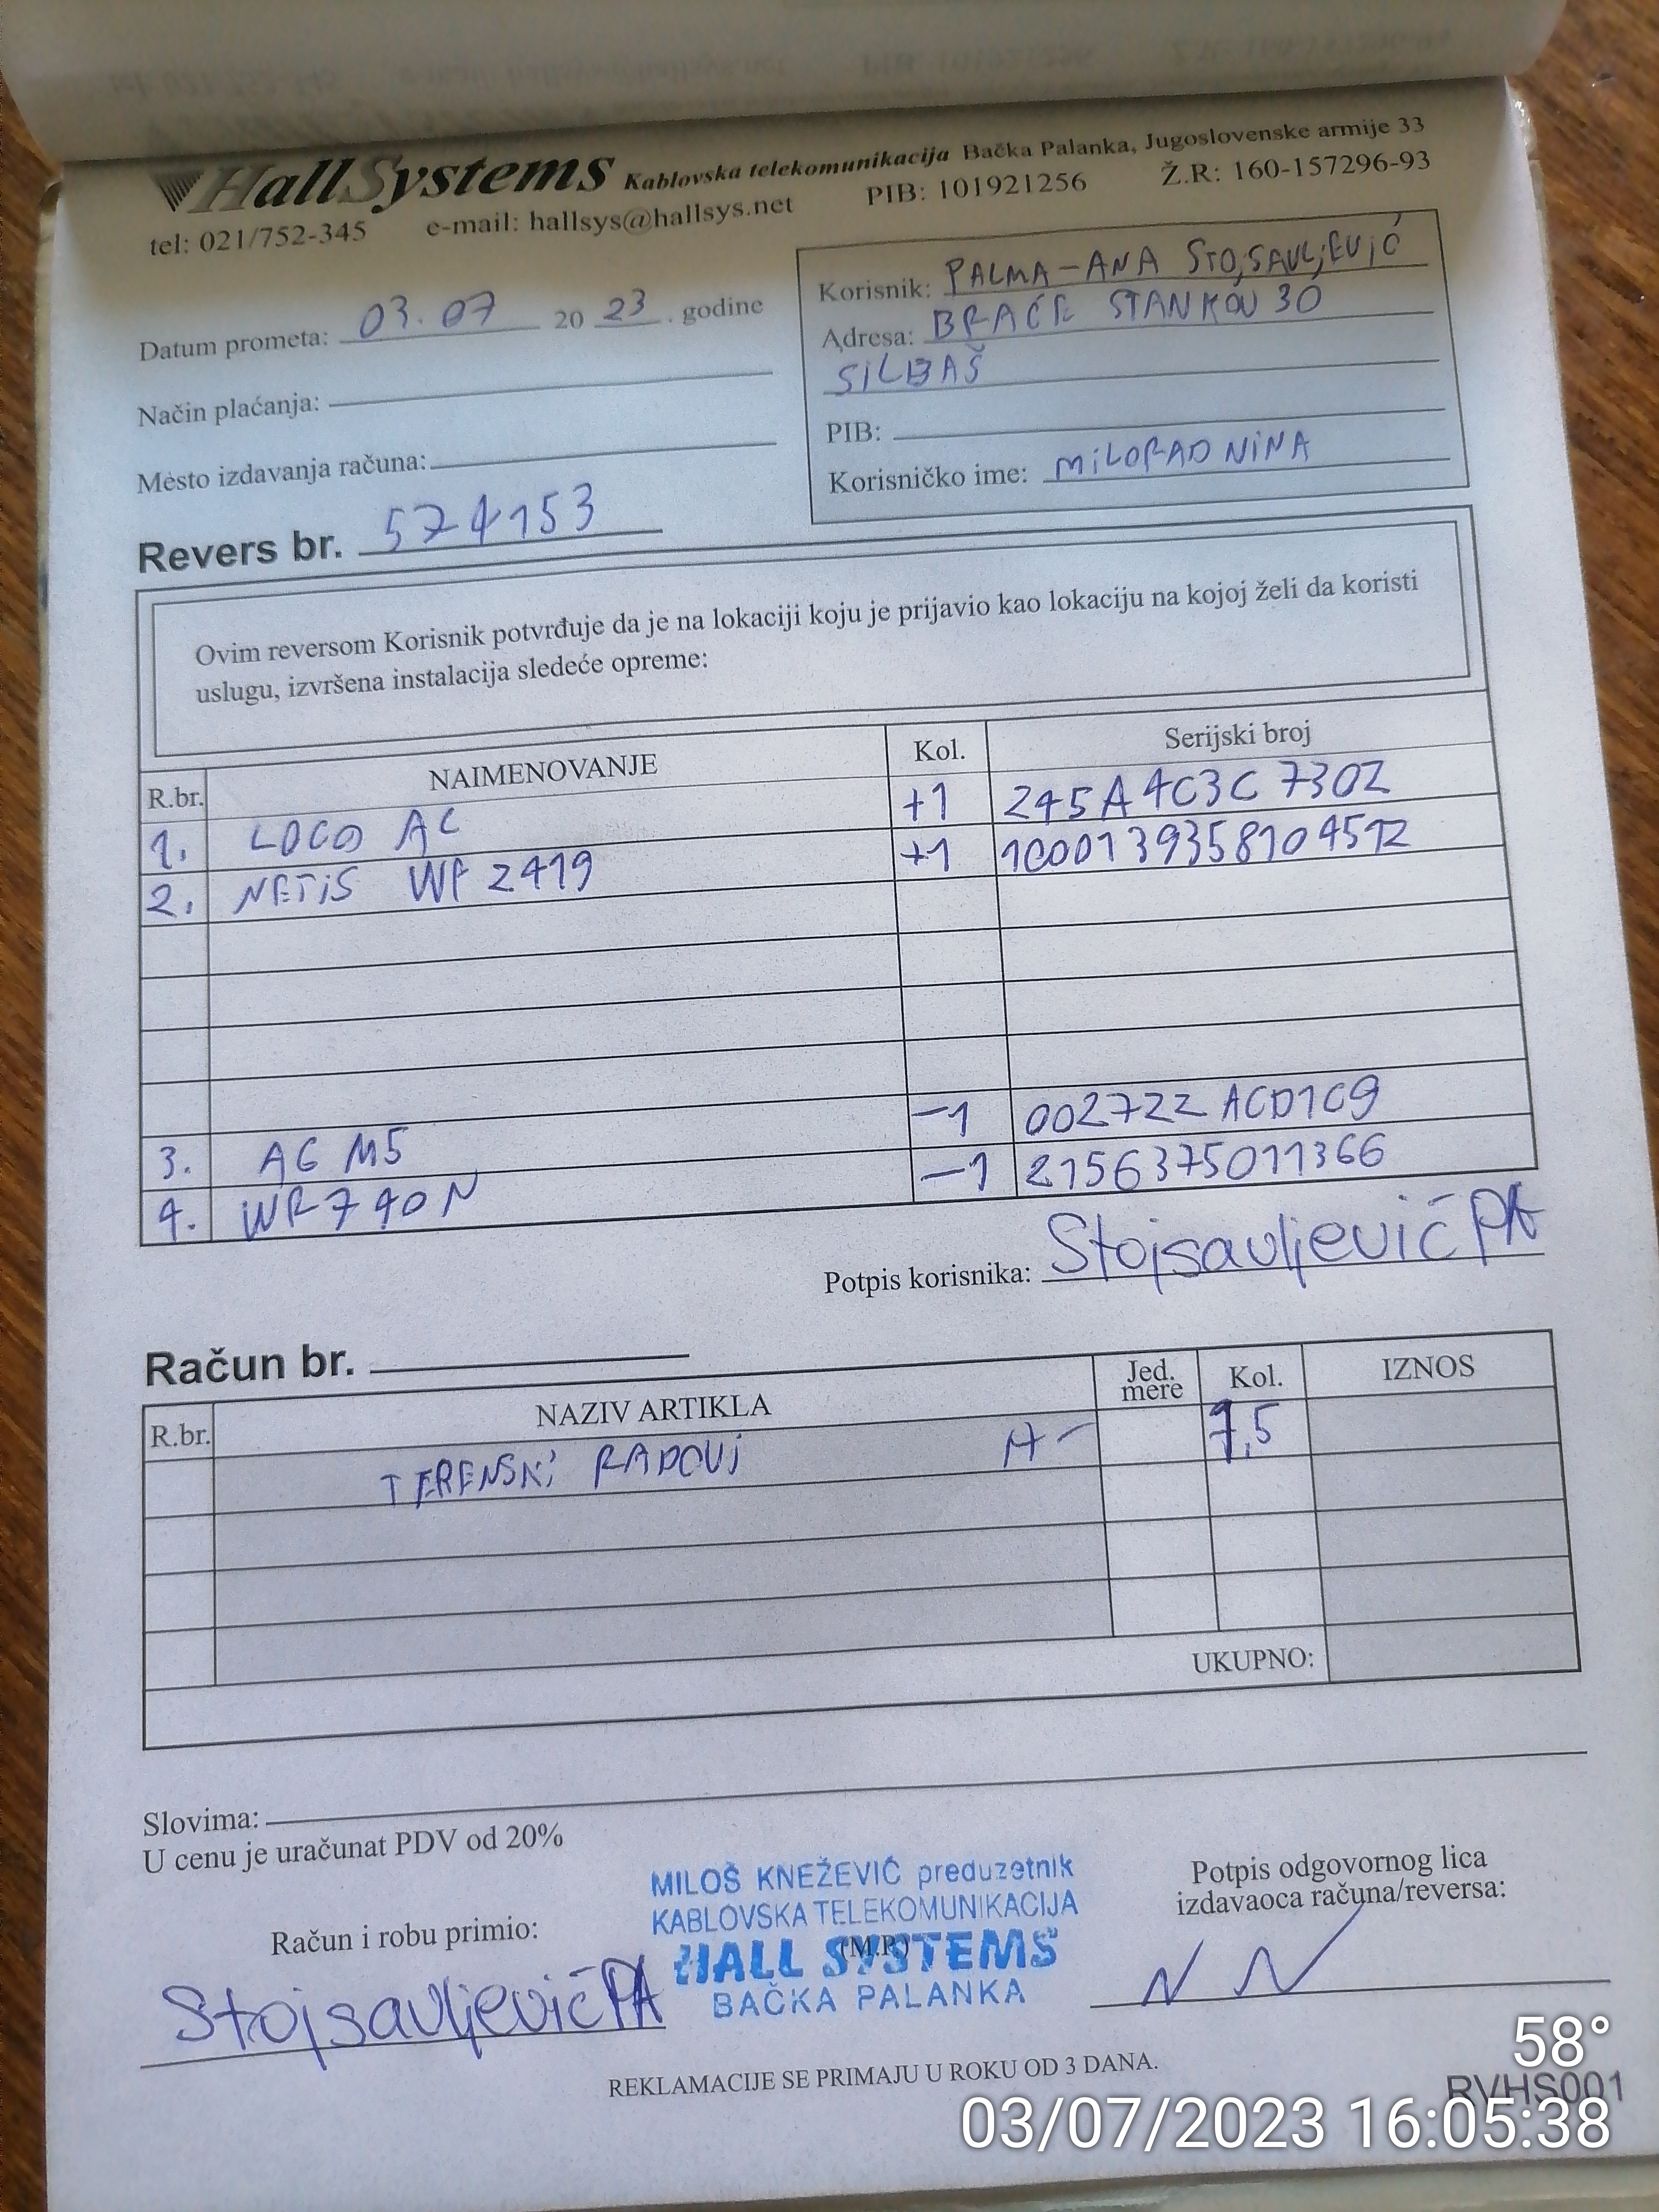 HallSystems Kablovska telekomunikacija Bačka Palanka, Jugoslovenske armije 33
tel: 021/752-345 e-mail: hallsys@hallsys.net PIB: 101921256 Ž.R: 160-157296-93
Datum prometa: 03.07 20 23 . godine
Način plaćanja:
Mesto izdavanja računa:
Korisnik: PALMA-ANA STOJSAVLJEVIĆ
Adresa: BRAĆE STANKOV 30
SILBAŠ
PIB:
Korisničko ime: MILORADNINA
Revers br. 574153
Ovim reversom Korisnik potvrđuje da je na lokaciji koju je prijavio kao lokaciju na kojoj želi da koristi
uslugu, izvršena instalacija sledeće opreme:
R.br. NAIMENOVANJE Kol. Serijski broj
1. LOCO AC +1 245A4C3C730Z
2. NETIS WF 2419 +1 1000139358104512
3. AG M5 -1 002722ACD1C9
4. WR740N -1 2156375011366
Potpis korisnika: Stojsavljević PA
Račun br.
R.br. NAZIV ARTIKLA Jed. mere Kol. IZNOS
TERENSKI RADOVI A-
UKUPNO:
Slovima:
U cenu je uračunat PDV od 20%
Račun i robu primio:
Stojsavljević PA
MILOŠ KNEŽEVIĆ preduzetnik
KABLOVSKA TELEKOMUNIKACIJA
(M.P.)
HALL SYSTEMS
BAČKA PALANKA
Potpis odgovornog lica
izdavaoca računa/reversa:
REKLAMACIJE SE PRIMAJU U ROKU OD 3 DANA.
58°
RVHS001
03/07/2023 16:05:38